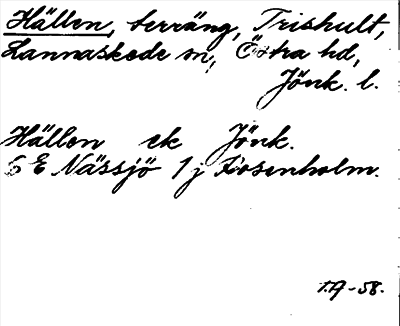 Hällen, terräng, Trishult,
Lannaskede sn, Östra hd,
Jönk. l.
Hällen ek Jönk.
6 E Nässjö 1 j Rosenholm.
T.A-58.